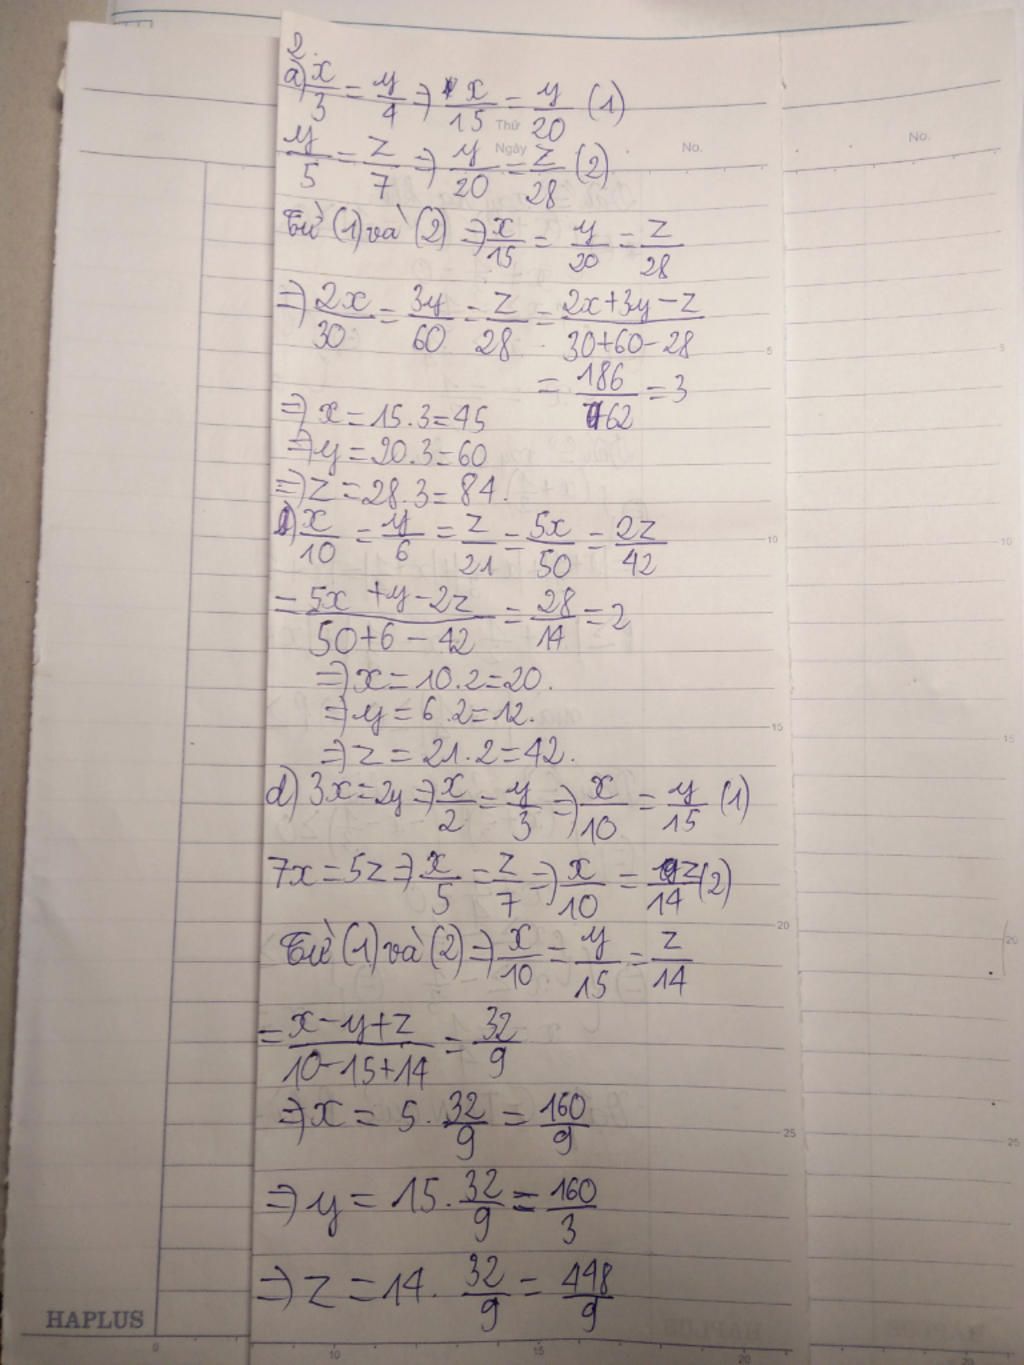 2.
a) x/3 = y/4 ⇒ x/15 = y/20 (1)
Thứ
Ngày
No.
No.
y/5 = z/7 ⇒ y/20 = z/28 (2)
Từ (1) và (2) ⇒ x/15 = y/20 = z/28
⇒ 2x/30 = 3y/60 = z/28 = (2x+3y-z)/(30+60-28)
= 186/62 = 3
⇒ x = 15.3 = 45
⇒ y = 20.3 = 60
⇒ z = 28.3 = 84.
x/10 = y/6 = z/21 = 5x/50 = 2z/42
= (5x+y-2z)/(50+6-42) = 28/14 = 2
⇒ x = 10.2 = 20.
⇒ y = 6.2 = 12.
⇒ z = 21.2 = 42.
d) 3x = 2y ⇒ x/2 = y/3 ⇒ x/10 = y/15 (1)
7x = 5z ⇒ x/5 = z/7 ⇒ x/10 = z/14 (2)
Từ (1) và (2) ⇒ x/10 = y/15 = z/14
= (x-y+z)/(10-15+14) = 32/9
⇒ x = 5.32/9 = 160/9
⇒ y = 15.32/9 = 160/3
⇒ z = 14.32/9 = 448/9
HAPLUS
5
10
15
20
25
5
10
15
20
25
0
10
15
20